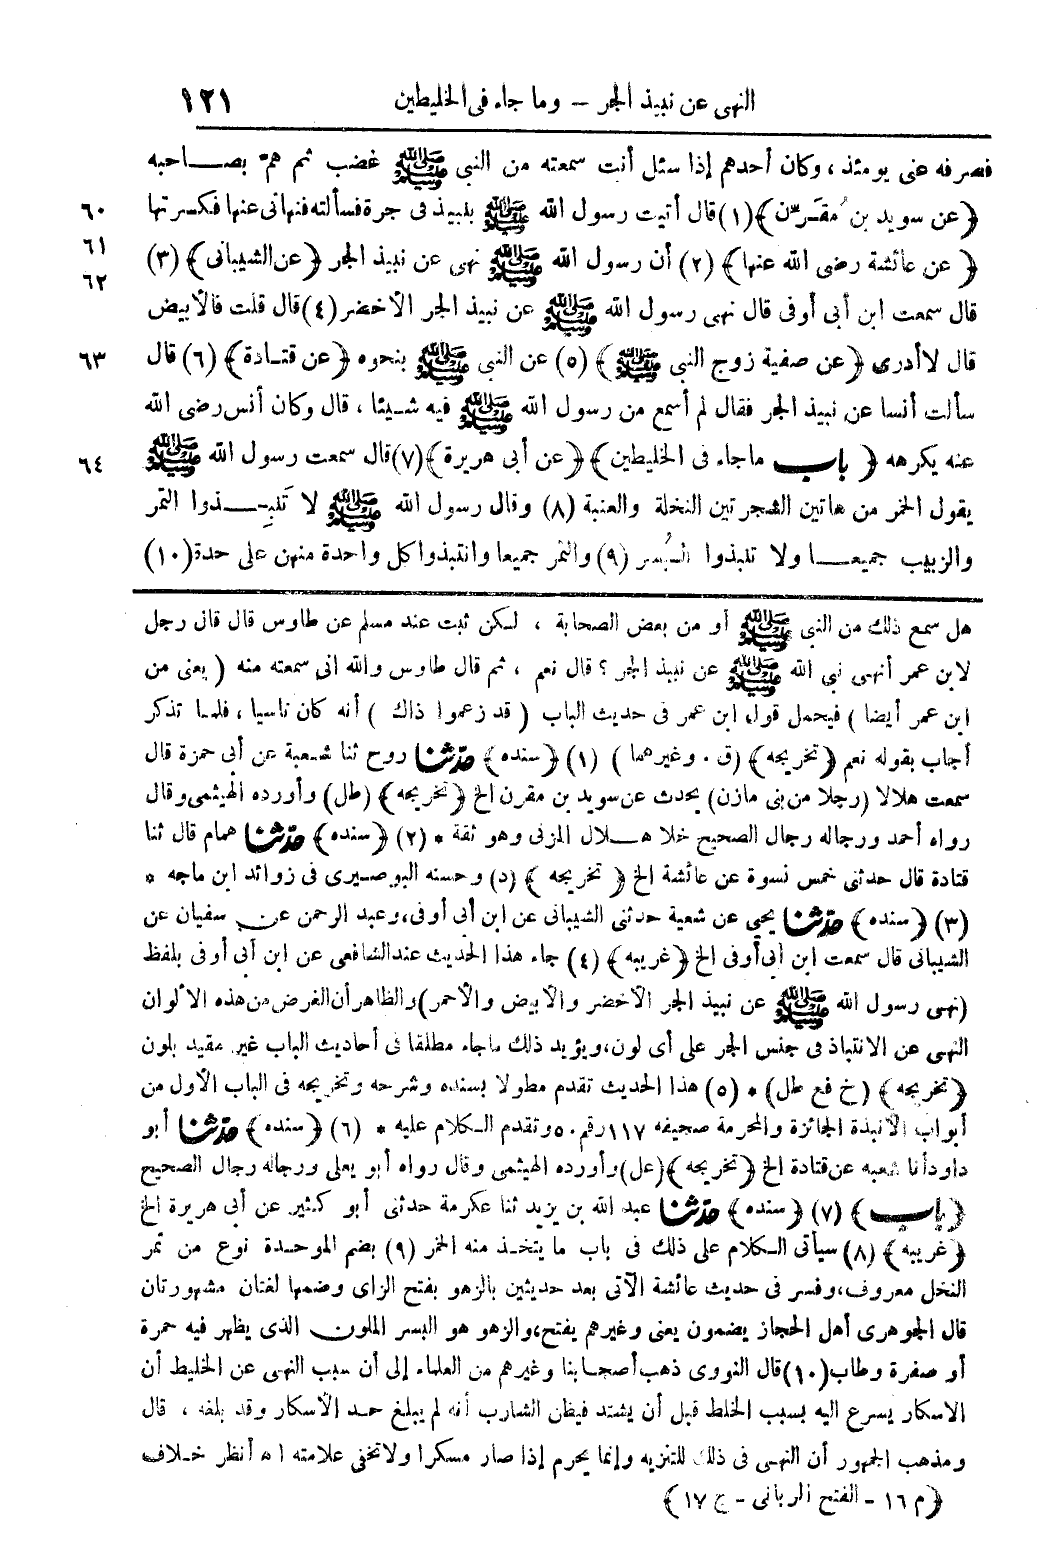 النهى عن نبيذ الجر – وما جاء فى الخليطين ١٢١
فصرفه عنى يومئذ، وكان أحدهم إذا سئل أنت سمعته من النبى ﷺ غضب ثم همّ بصاحبه
﴿عن سويد بن مُقَرِّن﴾ (١) قال أتيت رسول الله ﷺ بنبيذ فى جرة فسألته فنهانى عنها فكسرتها ٦٠
﴿عن عائشة رضى الله عنها﴾ (٢) أن رسول الله ﷺ نهى عن نبيذ الجر ﴿عن الشيبانى﴾ (٣) ٦١ ٦٢
قال سمعت ابن أبى أوفى قال نهى رسول الله ﷺ عن نبيذ الجر الأخضر (٤) قال قلت فالأبيض
قال لا أدرى ﴿عن صفية زوج النبى ﷺ﴾ (٥) عن النبى ﷺ بنحوه ﴿عن قتادة﴾ (٦) قال ٦٣
سألت أنسا عن نبيذ الجر فقال لم أسمع من رسول الله ﷺ فيه شيئا، قال وكان أنس رضى الله
عنه يكرهه ﴿باب ماجاء فى الخليطين﴾ ﴿عن أبى هريرة﴾ (٧) قال سمعت رسول الله ﷺ ٦٤
يقول الخمر من هاتين الشجرتين النخلة والعنبة (٨) وقال رسول الله ﷺ لا تَنبِذوا التمر
والزبيب جميعا ولا تنبذوا البُسر (٩) والتمر جميعا وانتبذوا كل واحدة منهن على حدة (١٠)
هل سمع ذلك من النبى ﷺ أو من بعض الصحابة، لكن ثبت عند مسلم عن طاوس قال قال رجل
لابن عمر أنهى نبى الله ﷺ عن نبيذ الجر؟ قال نعم، ثم قال طاوس والله انى سمعته منه (يعنى من
ابن عمر أيضا) فيحمل قول ابن عمر فى حديث الباب (قد زعموا ذاك) أنه كان ناسيا، فلما تذكر
أجاب بقوله نعم ﴿تخريجه﴾ (ق . وغيرهما) (١) ﴿سنده﴾ حدّثنا روح ثنا شعبة عن أبى حمزة قال
سمعت هلالا (رجلا من بنى مازن) يحدث عن سويد بن مقرن الخ ﴿تخريجه﴾ (طل) وأورده الهيثمى وقال
رواه أحمد ورجاله رجال الصحيح خلا هلال المزنى وهو ثقة * (٢) ﴿سنده﴾ حدّثنا همام قال ثنا
قتادة قال حدثنى خمس نسوة عن عائشة الخ ﴿تخريجه﴾ (د) وحسنه البوصيرى فى زوائد ابن ماجه *
(٣) ﴿سنده﴾ حدّثنا يحيى عن شعبة حدثنى الشيبانى عن ابن أبى أوفى، وعبد الرحمن عن سفيان عن
الشيبانى قال سمعت ابن أبى أوفى الخ ﴿غريبه﴾ (٤) جاء هذا الحديث عند الشافعى عن ابن أبى أوفى بلفظ
(نهى رسول الله ﷺ عن نبيذ الجر الأخضر والأبيض والأحمر) والظاهر أن الغرض من هذه الألوان
النهى عن الانتباذ فى جنس الجر على أى لون، ويؤيد ذلك ماجاء مطلقا فى أحاديث الباب غير مقيد بلون
﴿تخريجه﴾ (خ فع طل) * (٥) هذا الحديث تقدم مطولا بسنده وشرحه وتخريجه فى الباب الأول من
أبواب الأنبذة الجائزة والمحرمة صحيفه ١١٧ رقم ٥٠ وتقدم الكلام عليه * (٦) ﴿سنده﴾ حدّثنا أبو
داود أنا شعبه عن قتادة الخ ﴿تخريجه﴾ (عل) وأورده الهيثمى وقال رواه أبو يعلى ورجاله رجال الصحيح
﴿باب﴾ (٧) ﴿سنده﴾ حدّثنا عبد الله بن يزيد ثنا عكرمة حدثنى أبو كثير عن أبى هريرة الخ
﴿غريبه﴾ (٨) سيأتى الكلام على ذلك فى باب ما يتخذ منه الخمر (٩) بضم الموحدة نوع من تمر
النخل معروف، وفسر فى حديث عائشة الآتى بعد حديثين بالزهو بفتح الزاى وضمها لغتان مشهورتان
قال الجوهرى أهل الحجاز يضمون يعنى وغيرهم يفتح، والزهو هو البسر الملون الذى يظهر فيه حمرة
أو صفرة وطاب (١٠) قال النووى ذهب أصحابنا وغيرهم من العلماء إلى أن سبب النهى عن الخليط أن
الاسكار يسرع اليه بسبب الخلط قبل أن يشتد فيظن الشارب أنه لم يبلغ حد الأسكار وقد بلغه، قال
ومذهب الجمهور أن النهى فى ذلك للتنزيه وإنما يحرم إذا صار مسكرا ولا تخفى علامته اه أنظر خلاف
﴿م ١٦ - الفتح الربانى - ج ١٧﴾